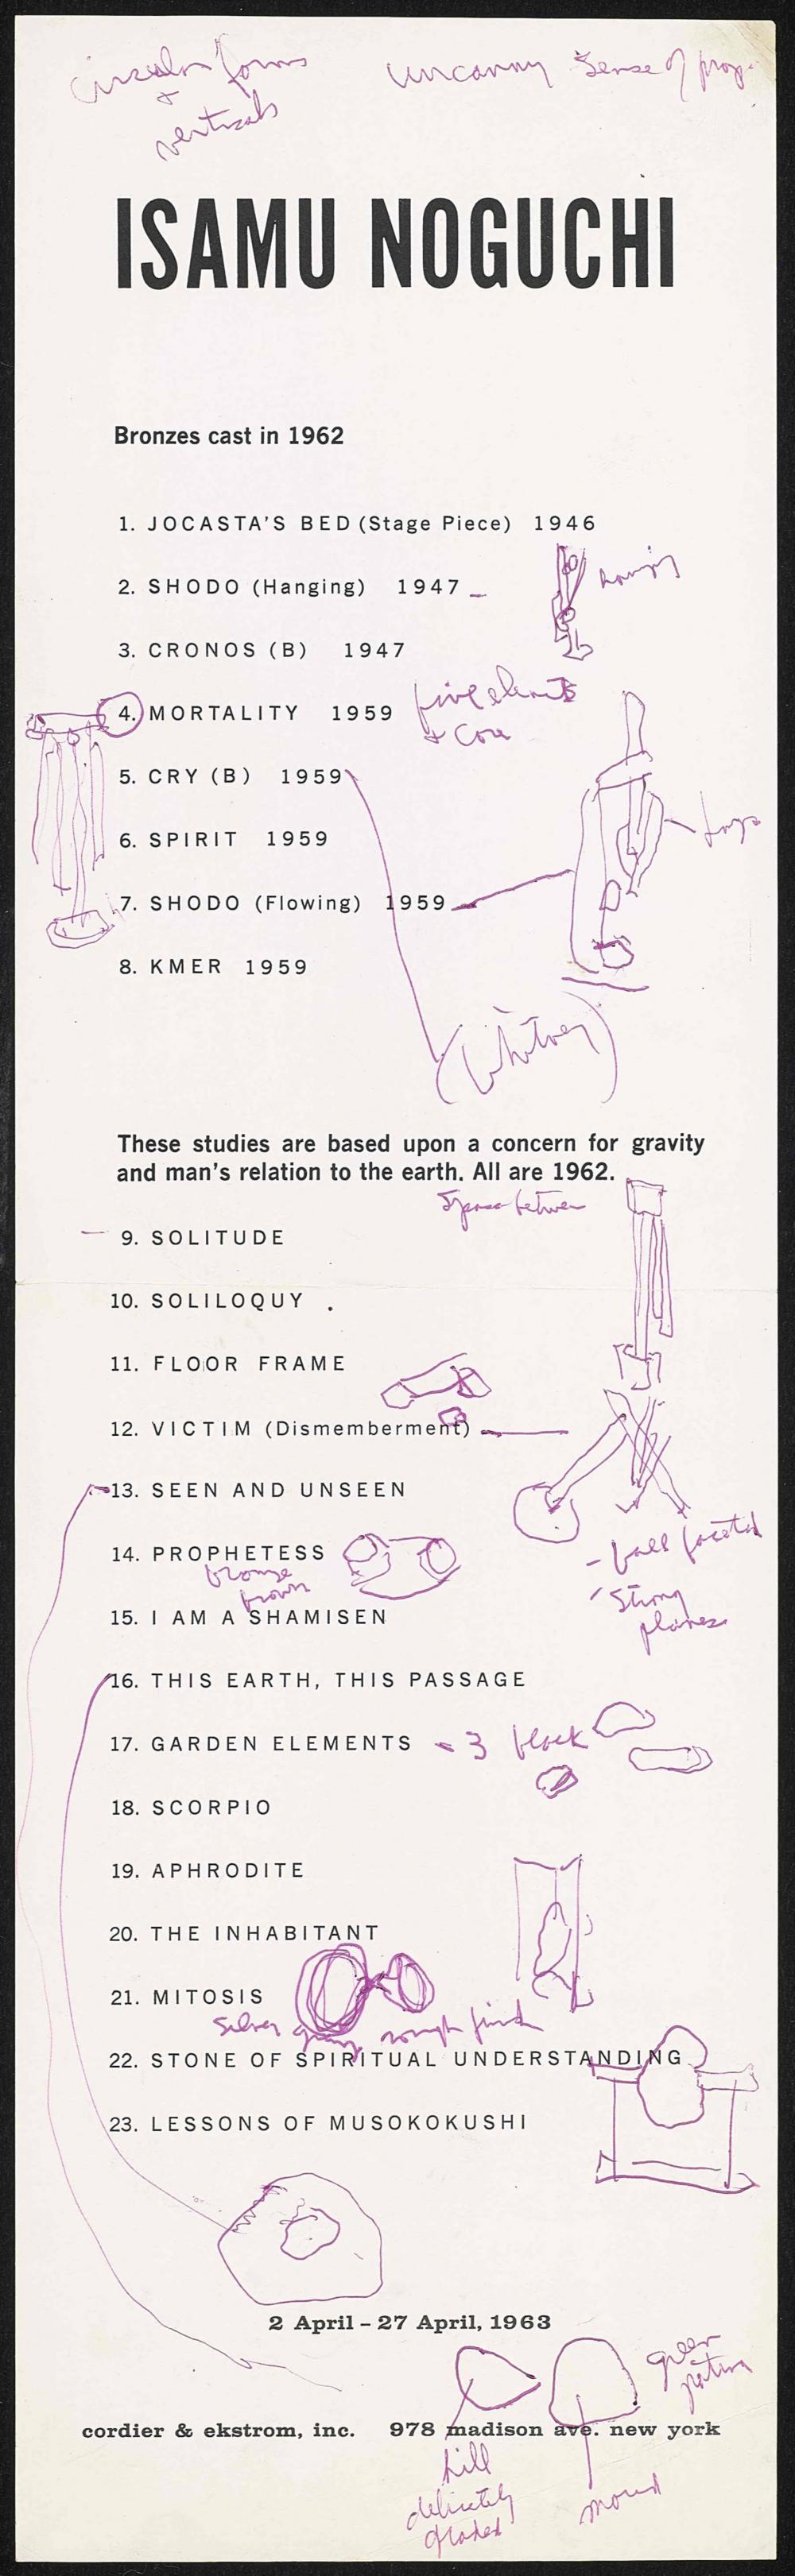 circular forms
+
verticals
uncanny sense of prop.
ISAMU NOGUCHI
Bronzes cast in 1962
1. JOCASTA'S BED (Stage Piece) 1946
2. SHODO (Hanging) 1947
hanging
3. CRONOS (B) 1947
4. MORTALITY 1959
five elements
+ core
5. CRY (B) 1959
6. SPIRIT 1959
7. SHODO (Flowing) 1959
8. KMER 1959
(Whitney)
These studies are based upon a concern for gravity
and man's relation to the earth. All are 1962.
space between
9. SOLITUDE
10. SOLILOQUY
11. FLOOR FRAME
12. VICTIM (Dismemberment)
13. SEEN AND UNSEEN
- ball faceted
- strong
planes
14. PROPHETESS
bronze
brown
15. I AM A SHAMISEN
16. THIS EARTH, THIS PASSAGE
17. GARDEN ELEMENTS - 3 black
18. SCORPIO
19. APHRODITE
20. THE INHABITANT
21. MITOSIS
silver gray rough finish
22. STONE OF SPIRITUAL UNDERSTANDING
23. LESSONS OF MUSOKOKUSHI
2 April – 27 April, 1963
green
patina
cordier & ekstrom, inc. 978 madison ave. new york
hill
delicately
mound